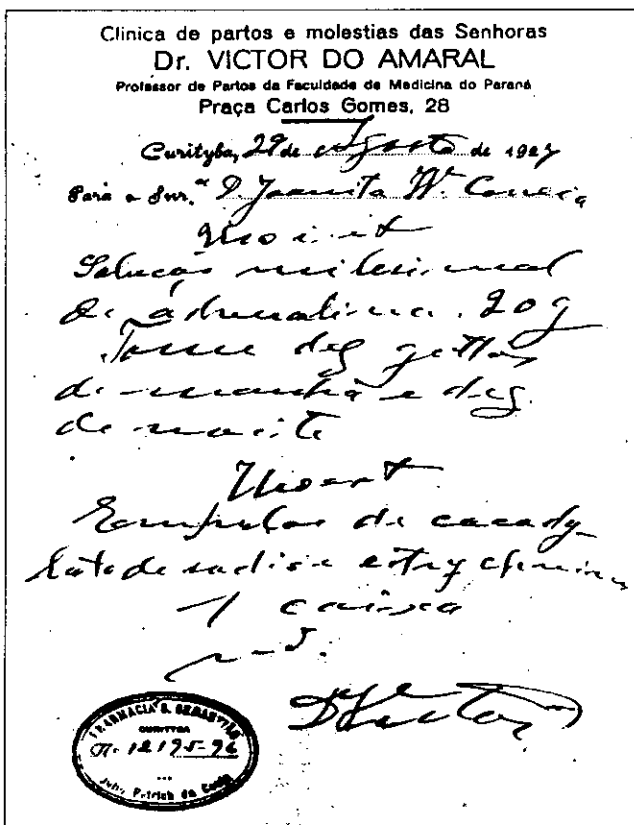 Clinica de partos e molestias das Senhoras
Dr. VICTOR DO AMARAL
Professor de Partos da Faculdade de Medicina do Paraná
Praça Carlos Gomes, 28
Curityba, 29 de Agosto de 1927
Para a Snr.ª D. Juanita W. Correia
Solução milesimal
de adrenalina. 20 g
Tome dez gottas
de manhã e dez
de noite
Empolas de cacody-
lato de sodio e strychnina
1 caixa
Dr Victor
PHARMACIA S. SEBASTIÃO
CURITYBA
No 12195-96
Julio Petrich da Costa